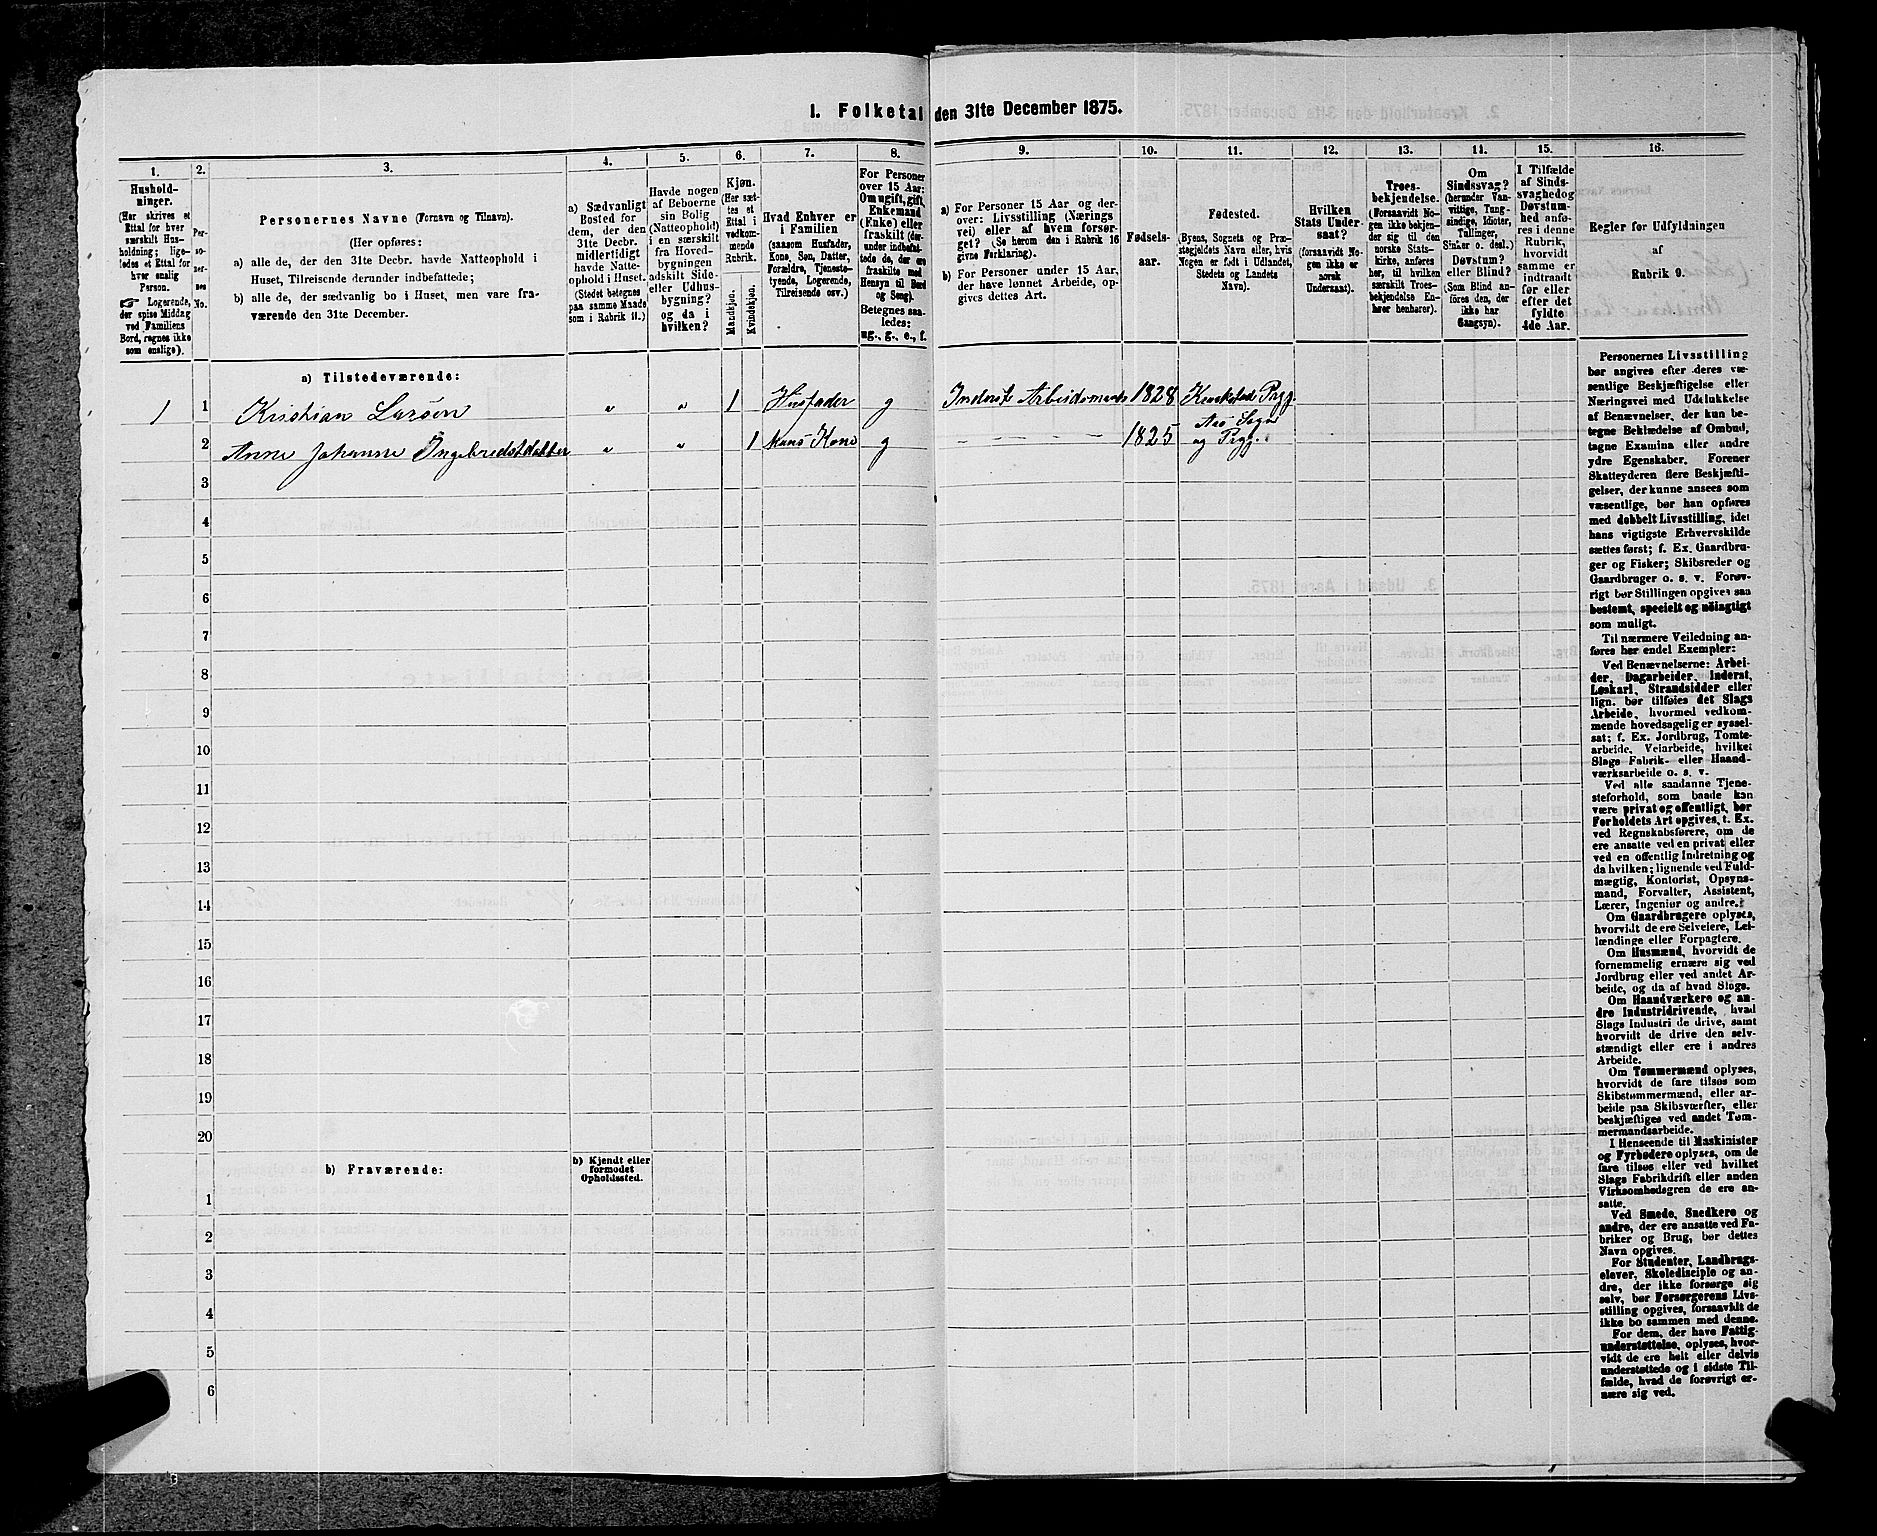 1. Folketal den 31te December 1875.
1.
2.
3.
4.
5.
6.
7.
8.
9.
10.
11.
12.
13.
14.
15.
16.
Hushold-
ninger.
(Her skrives et
Ettal for hver
særskilt Hus-
holdning; lige-
ledes et Ettal for
hver enslig
Person.
☞ Logerende,
der spise Middag
ved Familiens
Bord, regnes ikke
som enslige).
Per-
so-
ner-
nes
No.
Personernes Navne (Fornavn og Tilnavn).
(Her opføres:
a) alle de, der den 31te Decbr. havde Natteophold i
Huset, Tilreisende derunder indbefattede;
b) alle de, der sædvanlig bo i Huset, men vare fra-
værende den 31te December.
a) Sædvanligt
Bosted for
dem, der den
31te Decbr.
midlertidigt
havde Natte-
ophold i Huset.
(Stedet betegnes
paa samme Maade
som i Rubrik 11.)
Havde nogen
af Beboerne
sin Bolig
(Natteophold)
i en særskilt
fra Hoved-
bygningen
adskilt Side-
eller Udhus-
bygning?
og da i
hvilken?
Kjøn.
(Her sæt-
tes et
Ettal i
vedkom-
mende
Rubrik.
Mandkjøn.
Kvindekjøn.
Hvad Enhver er
i Familien
(saasom Husfader,
Kone, Søn, Datter,
Forældre, Tjeneste-
tyende, Logerende,
Tilreisende osv.)
For Personer
over 15 Aar:
Om ugift, gift,
Enkemand
(Enke) eller
fraskilt (der-
under indbefat-
tede de, der ere
fraskilte med
Hensyn til Bord
og Seng).
Betegnes saa-
ledes:
ug., g., e., f.
a) For Personer 15 Aar og der-
over: Livsstilling (Nærings
vei) eller af hvem forsør-
get? (Se herom den i Rubrik 16
givne Forklaring).
b) For Personer under 15 Aar,
der have lønnet Arbeide, op-
gives dettes Art.
Fødsels-
aar.
Fødested.
(Byens, Sognets og Præ-
stegjeldets Navn eller, hvis
Nogen er født i Udlandet,
Stedets og Landets
Navn).
Hvilken
Stats Under-
saat?
(forsaavidt No-
gen ikke er
norsk
Undersaat).
Troes-
bekjendelse.
(Forsaavidt No-
gen ikke bekjen-
der sig til den
norske Stats-
kirke, anføres
her, til hvilken
særskilt Troes-
bekjendelse En-
hver henhører).
Om
Sindssvag?
(herunder Van-
vittige, Tung-
sindige, Idioter,
Tullinger,
Sinker o. desl.)
Døvstum?
eller Blind?
(Som Blind an-
føres den, der
ikke har
Gangsyn).
I Tilfælde
af Sinds-
svaghed og
Døvstum-
hed anfø-
res i denne
Rubrik,
hvorvidt
samme er
indtraadt
før eller
efter det
fyldte
4de Aar.
Regler for Udfyldningen
af
Rubrik 9.
a) Tilstedeværende:
1 1 Kristian Larsen " " 1 Husfader g Inderst Arbeidsmand 1828 Krakstad Prgj.
2 Anne Johanne Ingebretsdatter " " 1 Hans Kone g - - - - - - 1825 Aas Sogn
og Prgj.
3
4
5
6
7
8
9
10
11
12
13
14
15
16
17
18
19
20
b) Fraværende:
b) Kjendt eller
formodet
Opholdssted.
1
2
3
4
5
6
Personernes Livsstilling
bør angives efter deres væ-
sentlige Beskjæftigelse eller
Næringsvei med Udelukkelse
af Benævnelser, der kun be-
tegne Beklædelse af Ombud,
tagne Examina eller andre
ydre Egenskaber. Forener
Skatteyderen flere Beskjæfti-
gelser, der kunne ansees som
væsentlige, bør han opføres
med dobbelt Livsstilling, idet
hans vigtigste Erhvervskilde
sættes først; f. Ex. Gaardbru-
ger og Fisker; Skibsreder og
Gaardbruger o. s. v. Forøv-
rigt bør Stillingen opgives saa
bestemt, specielt og nøiagtigt
som muligt.
Til nærmere Veiledning an-
føres her endel Exempler:
Ved Benævnelserne: Arbei-
der, Dagarbeider, Inderst,
Løskarl, Strandsidder eller
lign. bør tilføies det Slags
Arbeide, hvormed vedkom-
mende hovedsagelig er syssel-
sat; f. Ex. Jordbrug, Tomte-
arbeide, Veiarbeide, hvilket
Slags Fabrik- eller Haand-
værksarbeide o. s. v.
Ved alle saadanne Tjene-
steforhold, som baade kan
være privat og offentligt, bør
Forholdets Art opgives, t. Ex.
ved Regnskabsførere, om de
ere ansatte ved en privat eller
ved en offentlig Indretning og
da hvilken; lignende ved Fuld-
mægtig, Kontorist, Opsyns-
mand, Forvalter, Assistent,
Lærer, Ingeniør og andre.
Om Gaardbrugere oplyses,
hvorvidt de ere Selveiere, Lei-
lændinge eller Forpagtere.
Om Husmænd, hvorvidt de
fornemmelig ernære sig ved
Jordbrug eller ved andet Ar-
beide, og da af hvad Slags.
Om Haandværkere og an-
dre Industridrivende, hvad
Slags Industri de drive, samt
hvorvidt de drive den selv-
stændigt eller ere i andres
Arbeide.
Om Tømmermænd oplyses,
hvorvidt de fare tilsøs som
Skibstømmermænd, eller ar-
beide paa Skibsværfter, eller
beskjæftiges ved andet Tøm-
mermandsarbeide.
I Henseende til Maskinister
og Fyrbødere oplyses, om de
fare tilsøs eller ved hvilket
Slags Fabrikdrift eller anden
Virksomhedsgren de ere an-
satte.
Ved Smede, Snedkere og
andre, der ere ansatte ved Fa-
briker og Brug, bør dettes
Navn opgives.
For Studenter, Landbrugs-
elever, Skoledisciple og an-
dre, der ikke forsørge sig
selv, bør Forsørgerens Livs-
stilling opgives, forsaavidt de
ikke bo sammen med denne.
For dem, der have Fattig-
understøttelse, oplyses, hvor-
vidt de ere helt eller delvis
understøttede og i sidste Til-
fælde, hvad de forøvrigt er-
nære sig ved.